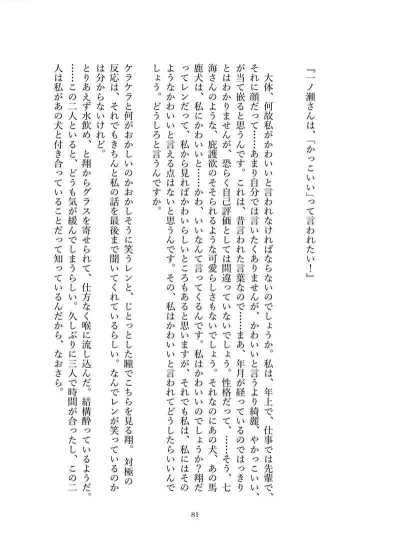 『一ノ瀬さんは、「かっこいい」って言われたい！』
大体、何故私がかわいいと言われなければならないのでしょうか。私は、年上で、仕事では先輩で、
それに顔だって……あまり自分では言いたくありませんが、かわいいと言うより綺麗、やかっこいい、
が当て嵌ると思うんです。これは、昔言われた言葉なので……まあ、年月が経っているのではっきり
とはわかりませんが、恐らく自己評価としては間違っていないでしょう。性格だって、……そう、七
海さんのような、庇護欲のそそられるような可愛らしさもないでしょう。それなのにあの犬、あの馬
鹿犬は、私にかわいいと……かわ、いいなんて言ってくるんです。私はかわいいのでしょうか？翔だ
ってレンだって、私から見ればかわいらしいところもあると思いますが、それでも私は、私にはその
ようなかわいいと言える点はないと思うんです。その、私はかわいいと言われてどうしたらいいんで
しょう。どうしろと言うんですか。
ケラケラと何がおかしいのかおかしそうに笑うレンと、じとっとした瞳でこちらを見る翔。対極の
反応は、それでもきちんと私の話を最後まで聞いてくれているらしい。なんでレンが笑っているのか
は分からないけれど。
とりあえず水飲め、と翔からグラスを寄せられて、仕方なく喉に流し込んだ。結構酔っているようだ。
……この二人といると、どうも気が緩んでしまうらしい。久しぶりに三人で時間が合ったし、この二
人は私があの犬と付き合っていることだって知っているんだから、なおさら。
81